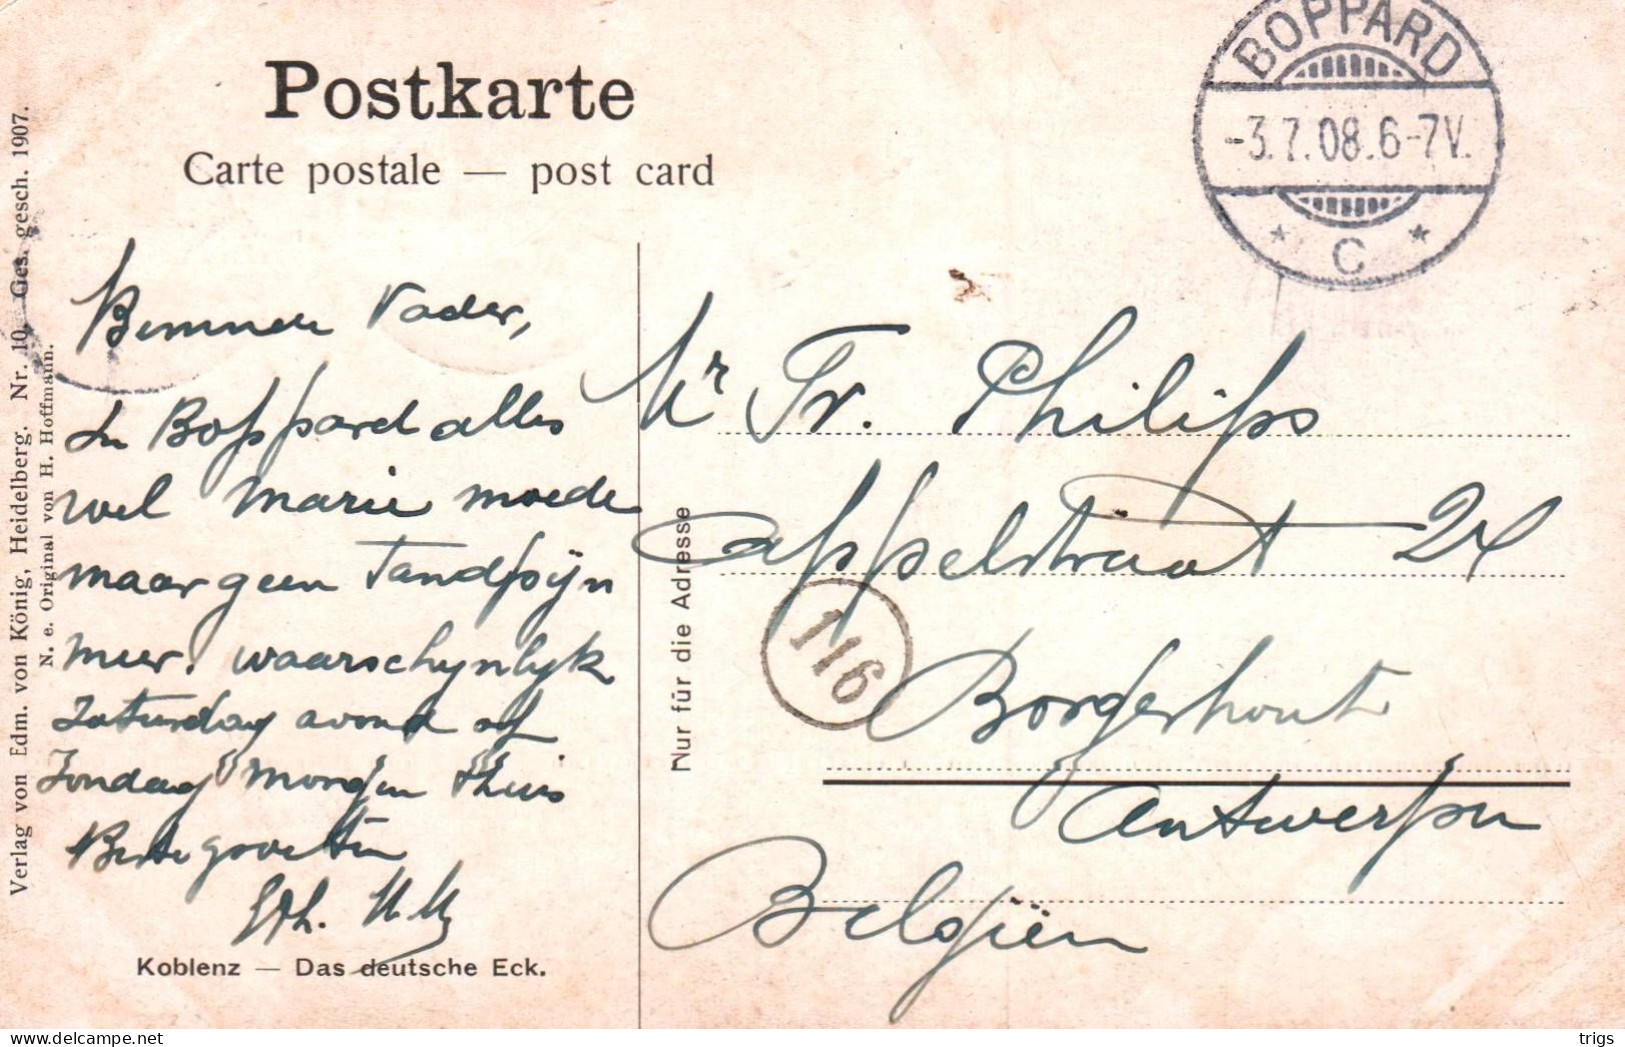 Postkarte
Carte postale — post card
BOPPARD
-3.7.08.6-7V.
* C *
Verlag von Edm. von König, Heidelberg. Nr. 10. Ges. gesch. 1907.
N. e. Original von H. Hoffmann.
Beminde Vader,
In Boppard alles
wel Marie moede
maar geen Tandpijn
meer. waarschynlyk
Zaturdag avond of
Zondag morgen thuis
Beste groeten
Koblenz — Das deutsche Eck.
Nur für die Adresse
Mr Fr. Philips
Cappelstraat 24
116
Borgerhout
Antwerpen
Belgiën
www.delcampe.net
trigs